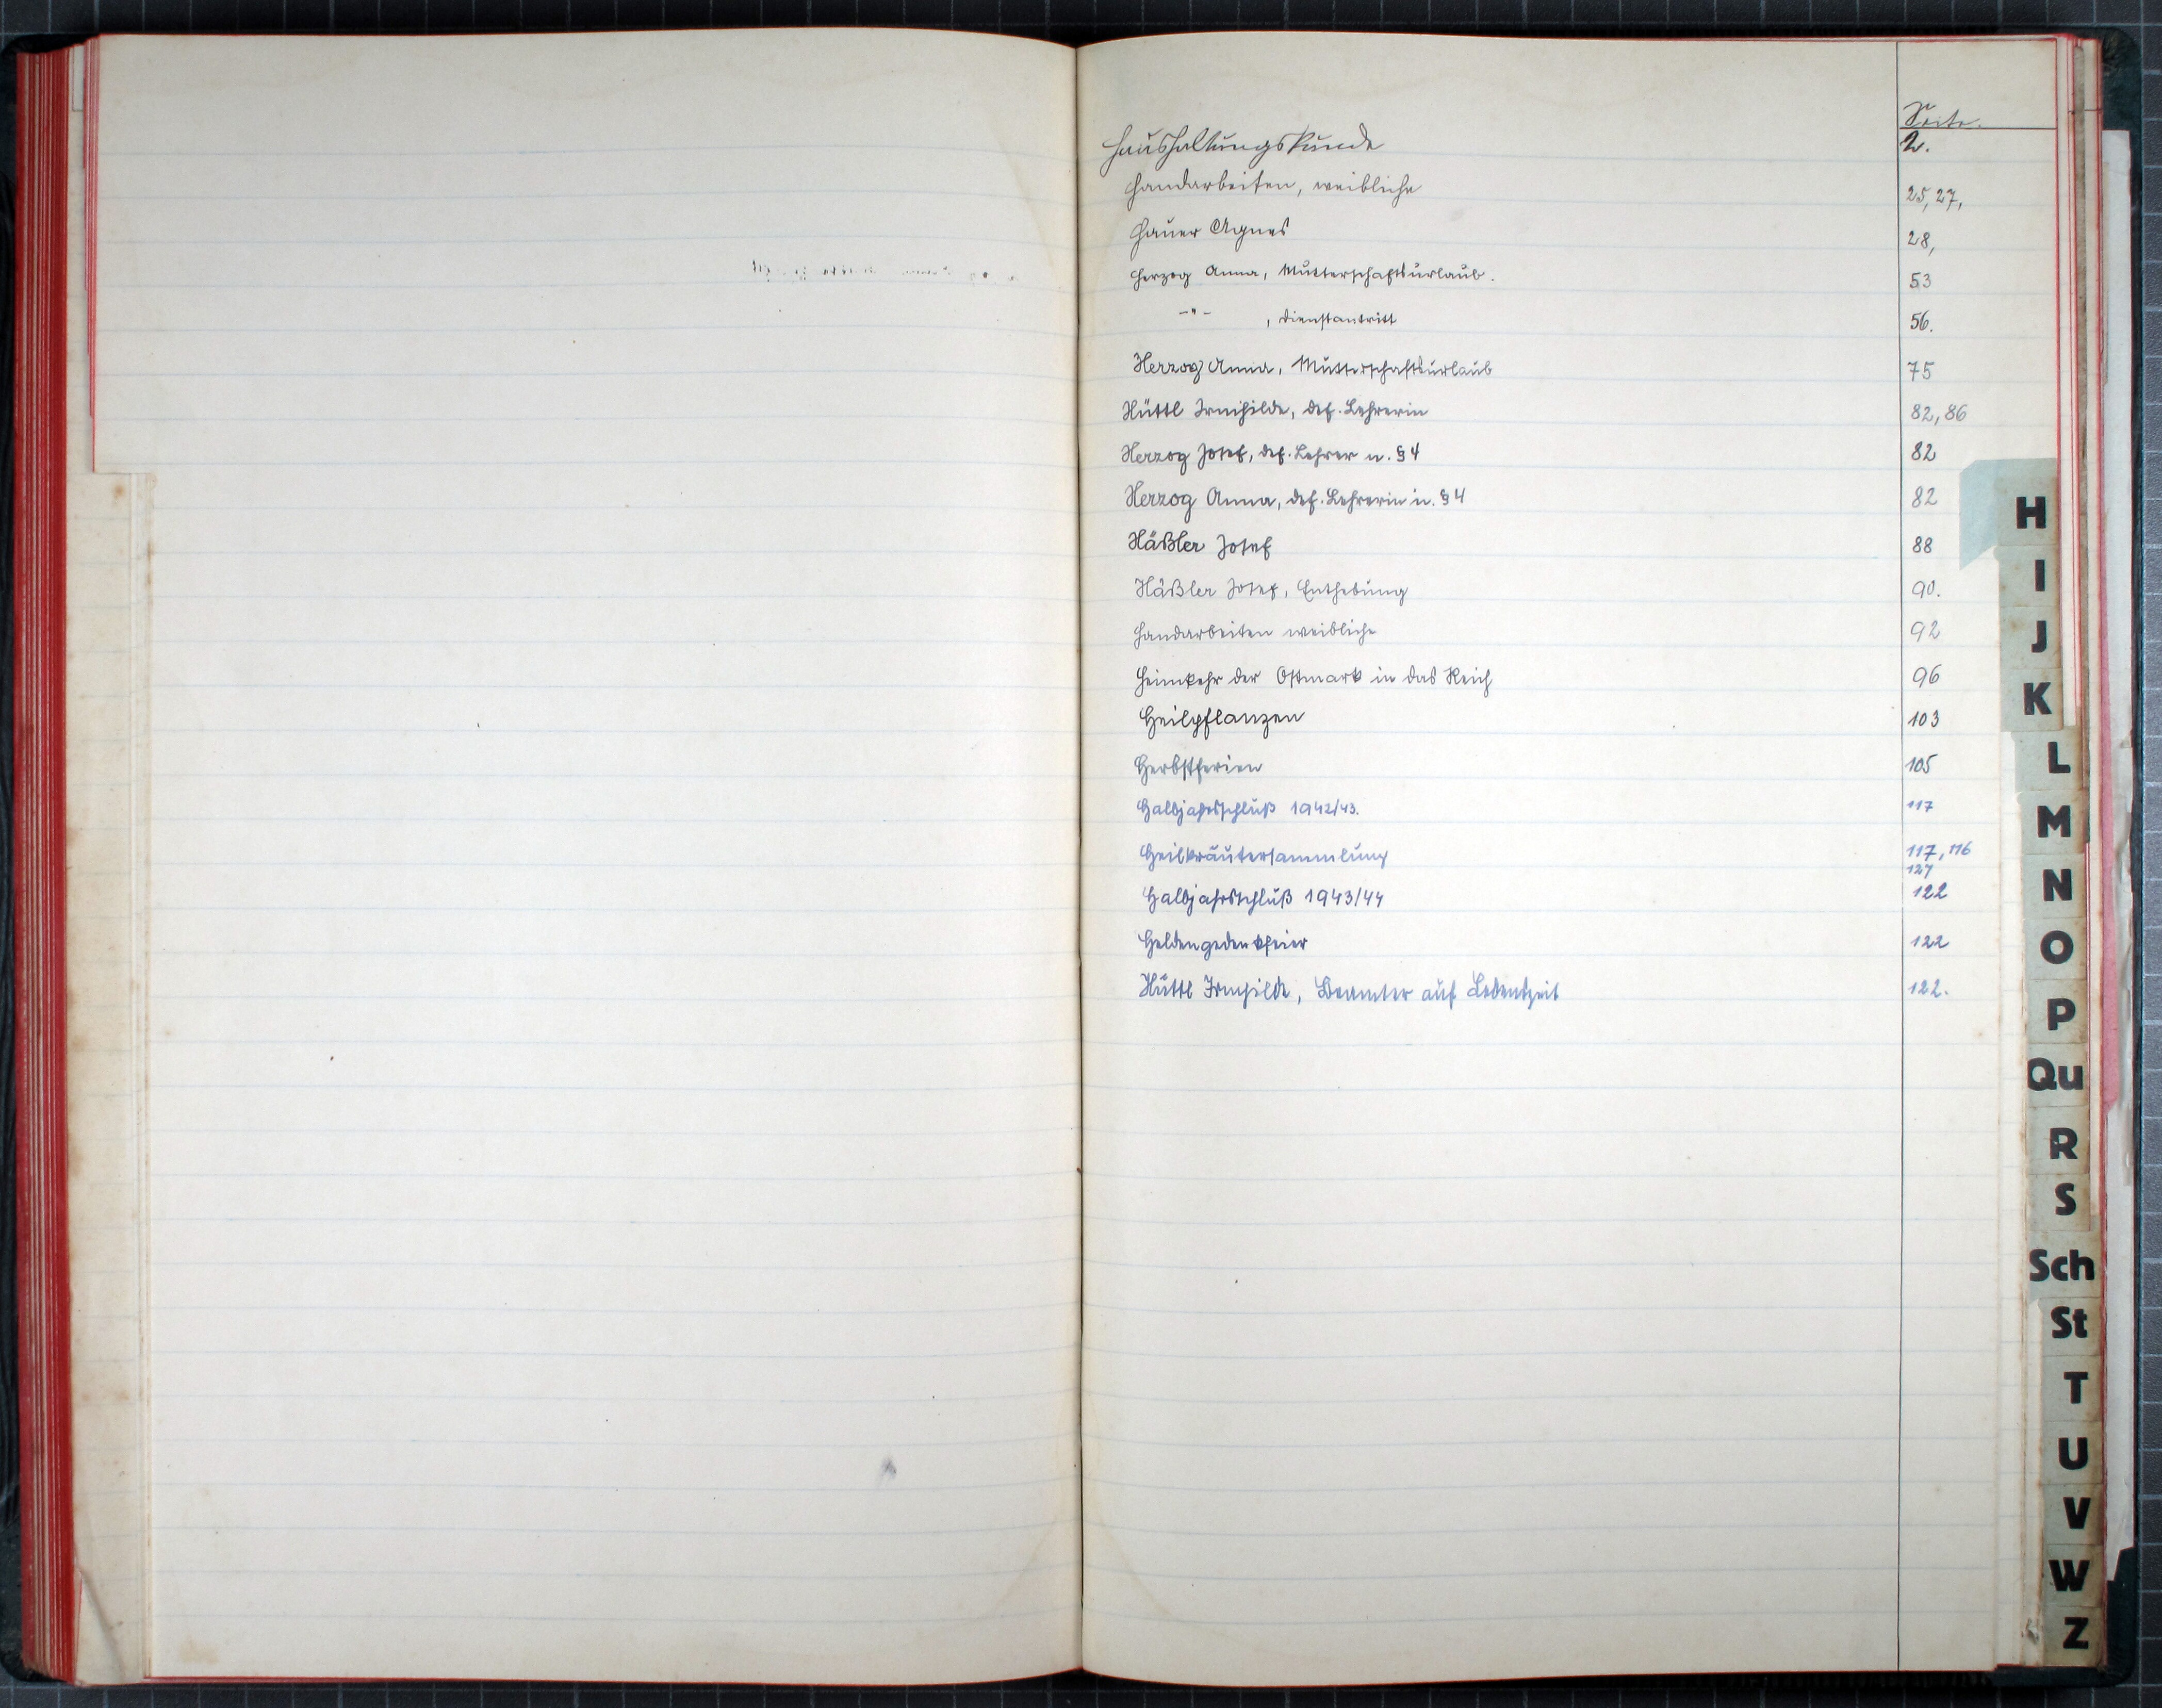 Seite.
Haushaltungskunde 2.
Handarbeiten, weibliche 25, 27,
Hauer Agnes 28,
Herzog Anna, Mutterschaftsurlaub. 53
-"- , Dienstantritt 56.
Herzog Anna, Mutterschaftsurlaub 75
Hüttl Irmhilde, def. Lehrerin 82, 86
Herzog Josef, def. Lehrer u. § 4 82
Herzog Anna, def. Lehrerin u. § 4 82
Häßler Josef 88
Häßler Josef, Enthebung 90.
Handarbeiten weibliche 92
Heimkehr der Ostmark in das Reich 96
Heilpflanzen 103
Herbstferien 105
Halbjahrsschluß 1942/43. 117
Heilkräutersammlung 117, 116
127
Halbjahrsschluß 1943/44 122
Heldengedenkfeier 122
Hüttl Irmhilde, Beamter auf Lebenszeit 122.
H
I
J
K
L
M
N
O
P
Qu
R
S
Sch
St
T
U
V
W
Z